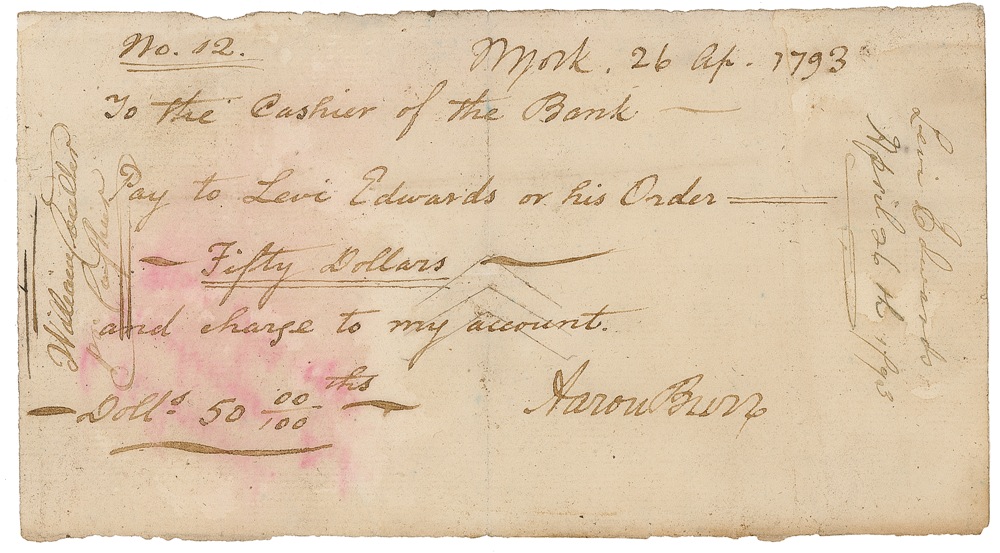 No. 12.
NYork. 26 Ap. 1793
To the Cashier of the Bank
Pay to Levi Edwards or his Order
Fifty Dollars
and charge to my account.
Dolls. 50 00/100 ths
Aaron Burr
William
Cashier
Levi Edwards
April 26th 1793